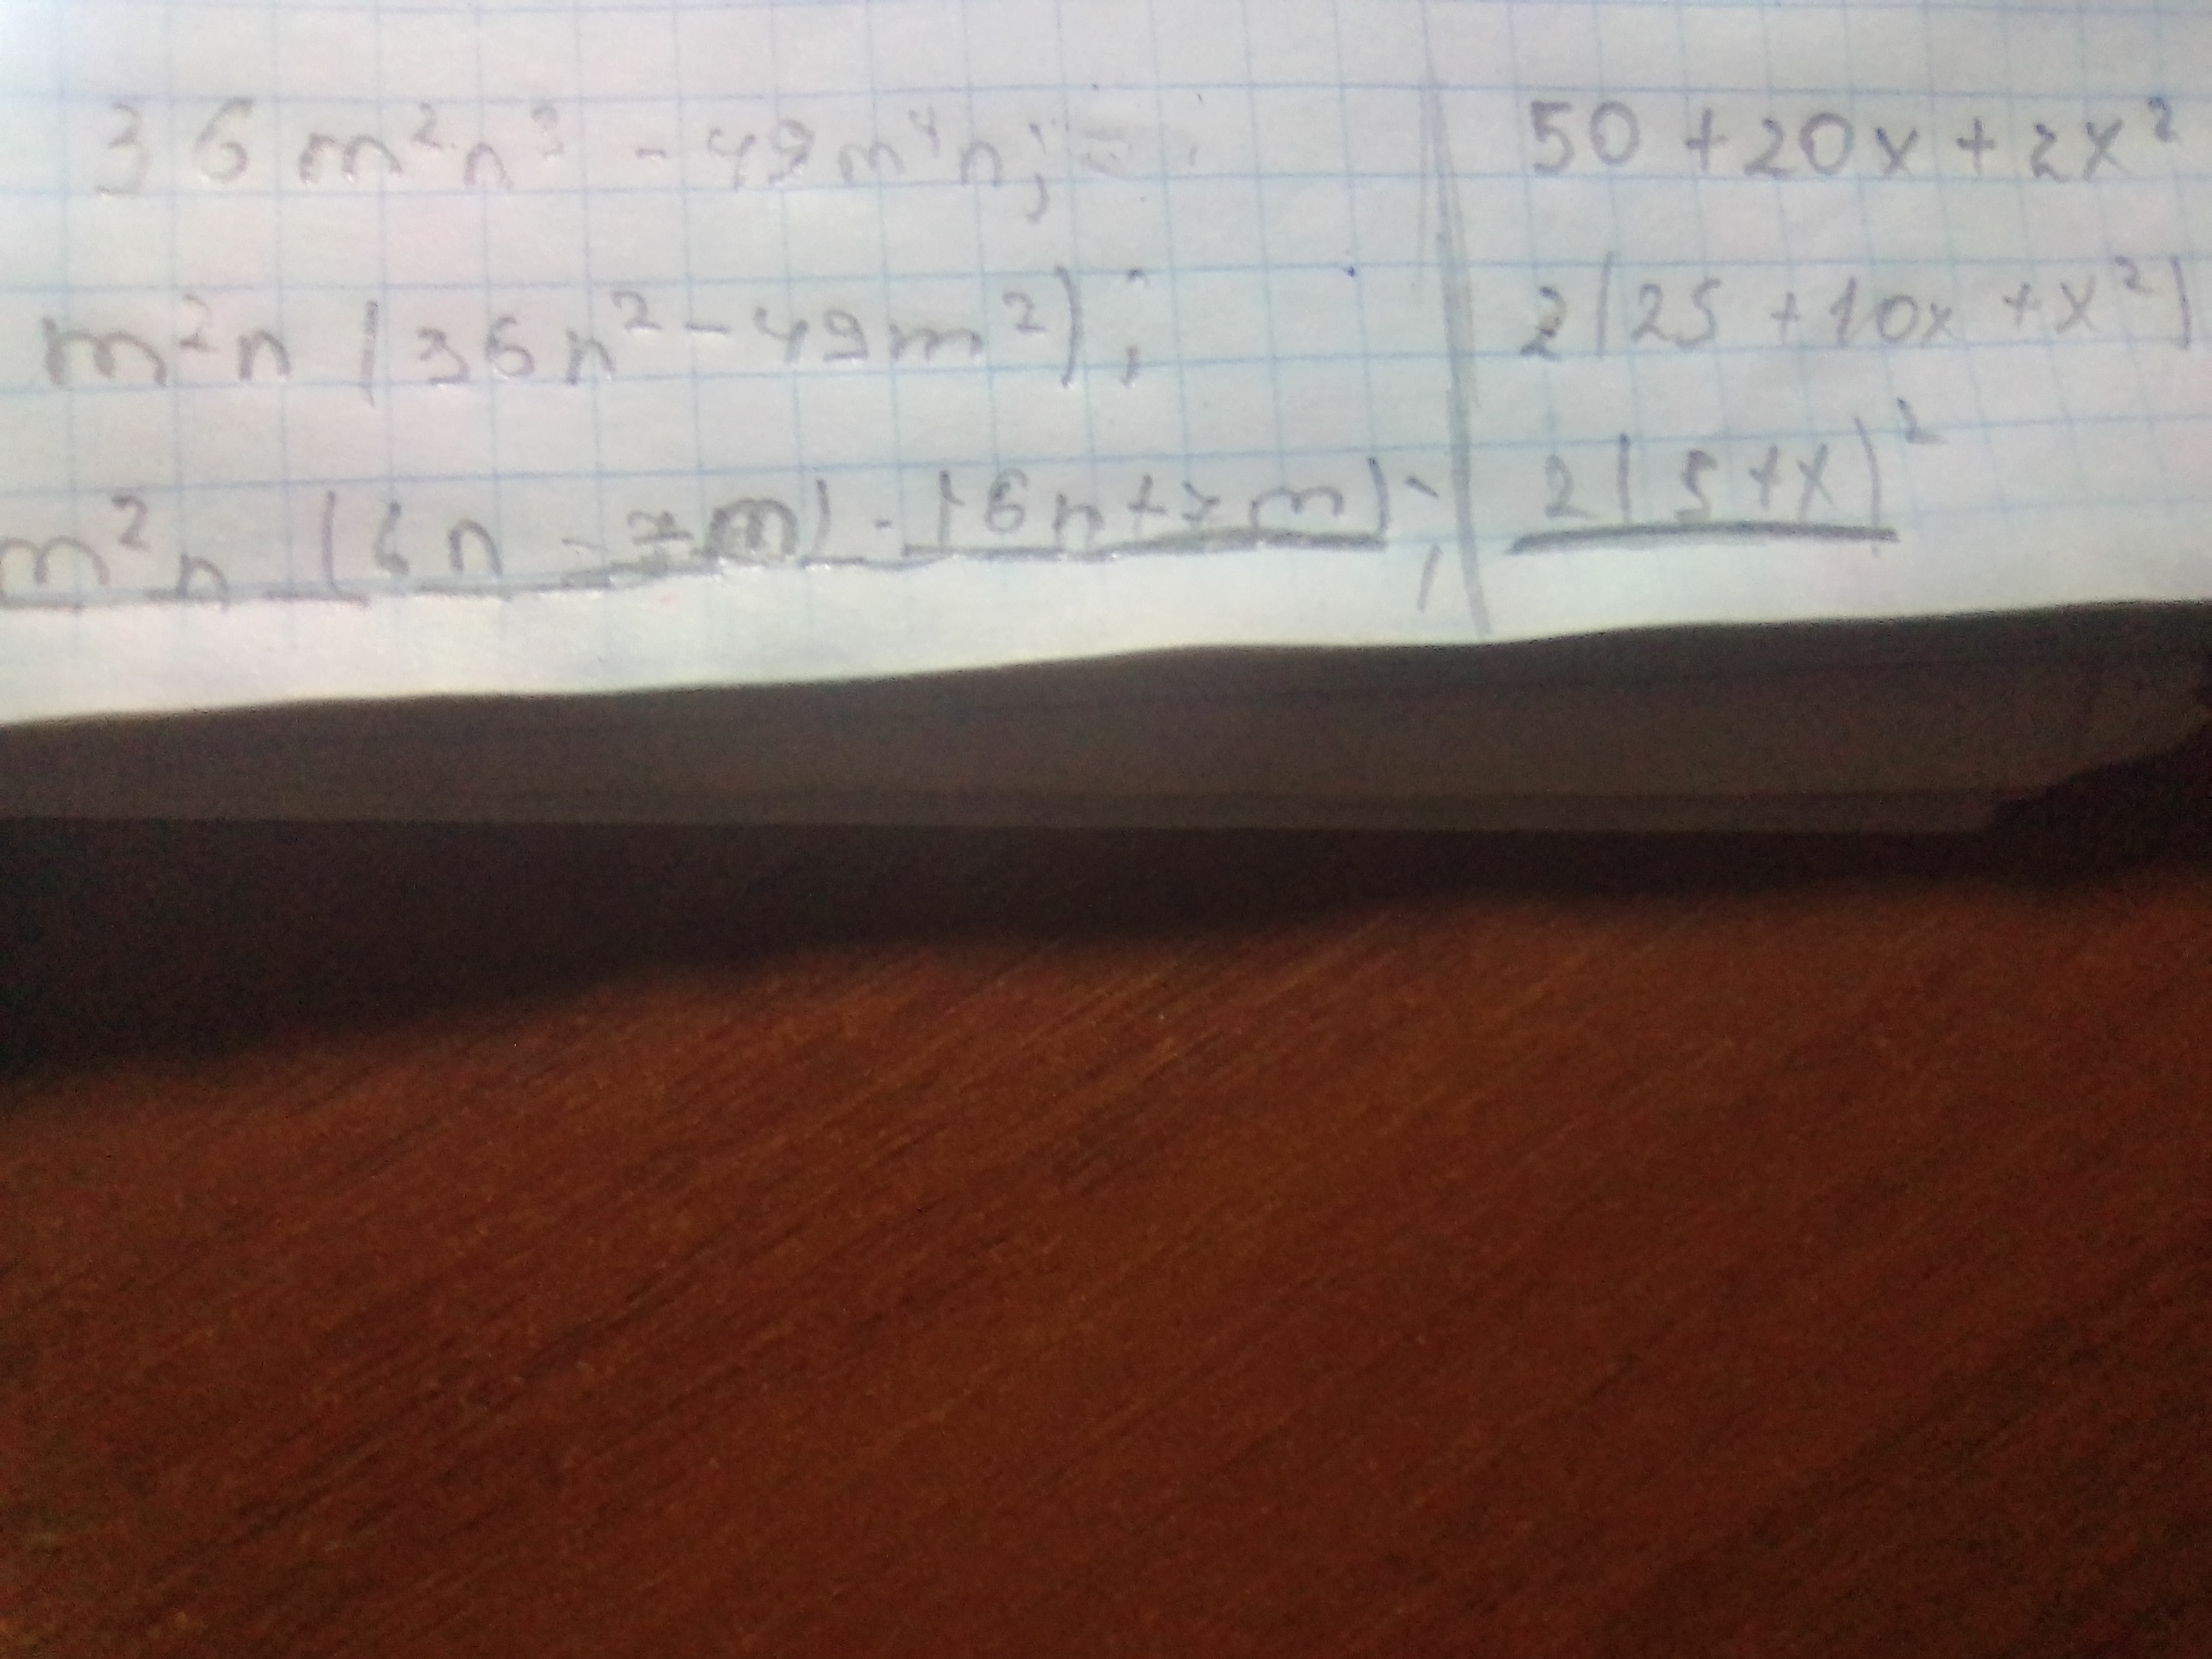 36m²n³ - 49m⁴n; =
m²n (36n² - 49m²);
m²n (6n - 7m) · (6n + 7m);
50 + 20x + 2x²
2(25 + 10x + x²)
2(5 + x)²